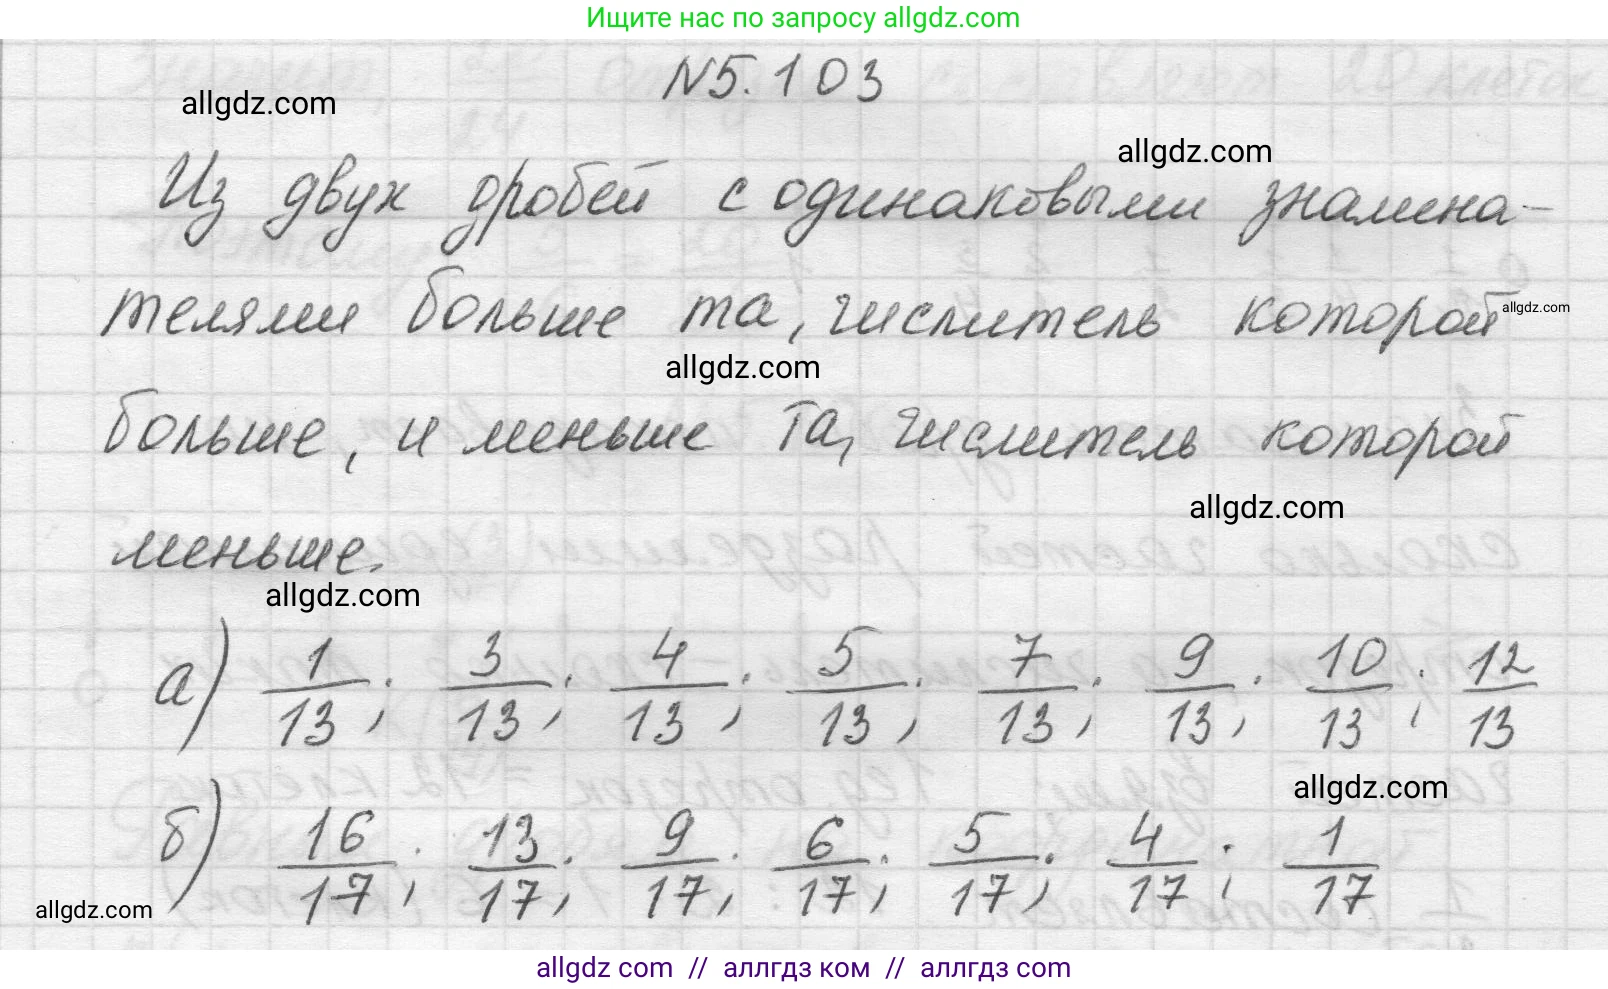 Ищите нас по запросу allgdz.com
N5.103
allgdz.com
allgdz.com
Из двух дробей с одинаковыми знамена-
телями больше та, числитель которой
allgdz.com
allgdz.com
больше, и меньше та, числитель которой
allgdz.com
меньше.
allgdz.com
а) 1/13; 3/13; 4/13; 5/13; 7/13; 9/13; 10/13; 12/13
allgdz.com
б) 16/17; 13/17; 9/17; 6/17; 5/17; 4/17; 1/17
allgdz.com
allgdz com // аллгдз ком // аллгдз com